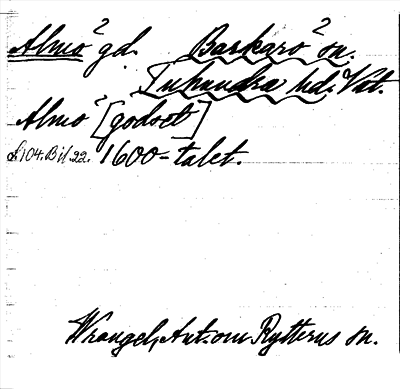 Almö² gd. Barkarö² sn.
Tuhundra hd. Vstl.
Almö² [godset]
f. 104. Bil 22. 1600-talet.
Wrangel, Ant. om Rytterns sn.